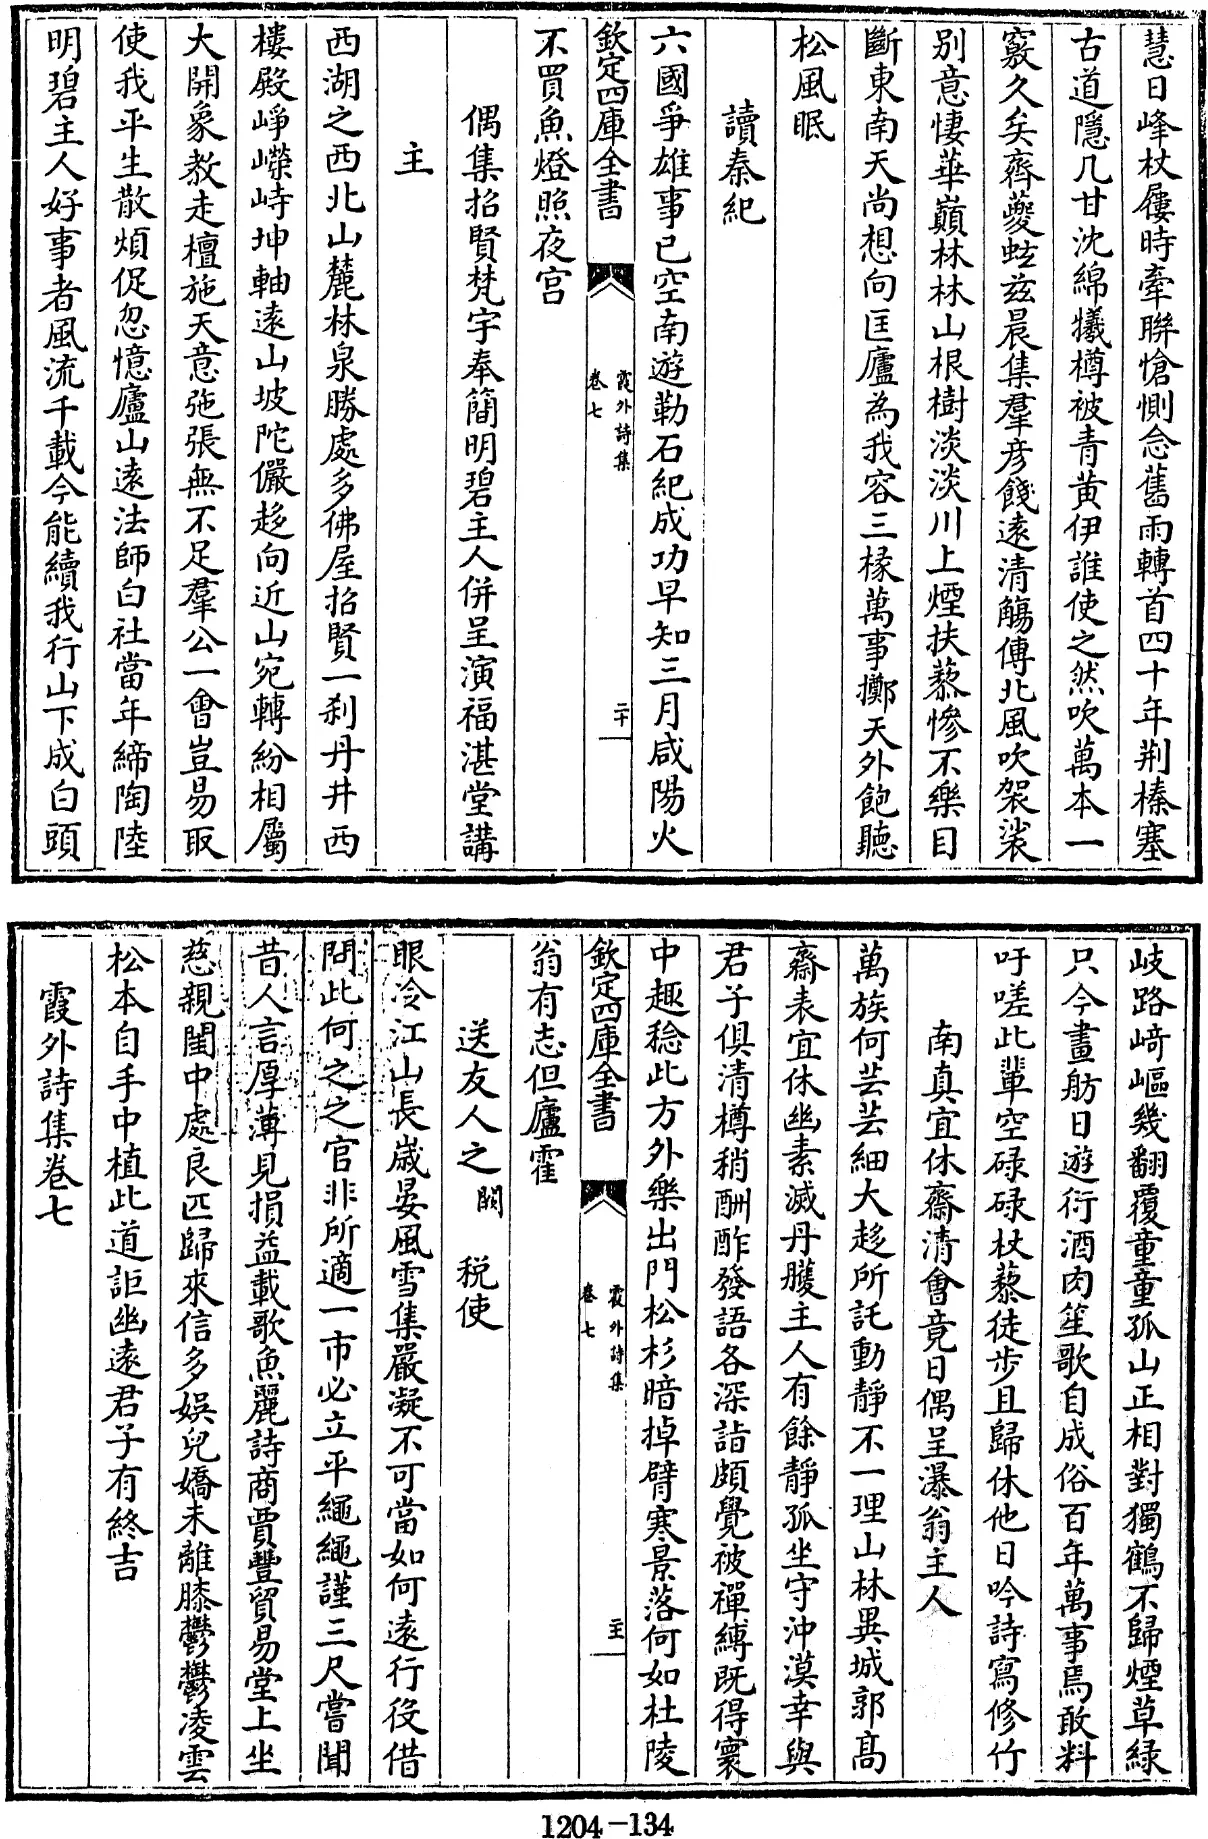 慧日峰杖屨時牽聯愴惻念舊雨轉首四十年荆榛塞
古道隱几甘沈綿犧樽被青黄伊誰使之然吹萬本一
竅久矣齊夔蚿兹晨集羣彦餞遠清觴傳北風吹袈裟
别意悽華巔林林山根樹淡淡川上煙扶藜慘不樂目
斷東南天尚想向匡廬為我容三椽萬事擲天外飽聽
松風眠
讀秦紀
六國爭雄事已空南遊勒石紀成功早知三月咸陽火
欽定四庫全書
霞外詩集
卷七
二十
不買魚燈照夜宫
偶集招賢梵宇奉簡明碧主人併呈演福湛堂講
主
西湖之西北山麓林泉勝處多佛屋招賢一刹丹井西
樓殿崢嶸峙坤軸遠山坡陀儼趍向近山宛轉紛相屬
大開象教走檀施天意弛張無不足羣公一會豈易取
使我平生散煩促忽憶廬山遠法師白社當年締陶陸
明碧主人好事者風流千載今能續我行山下成白頭
岐路﨑嶇幾翻覆童童孤山正相對獨鶴不歸煙草緑
只今畫舫日遊衍酒肉笙歌自成俗百年萬事焉敢料
吁嗟此輩空碌碌杖藜徒步且歸休他日吟詩寫修竹
南真宜休齋清會竟日偶呈瀑翁主人
萬族何芸芸細大趍所託動靜不一理山林異城郭髙
齋表宜休幽素滅丹雘主人有餘靜孤坐守沖漠幸與
君子俱清樽稍酬酢發語各深詣頗覺被禪縛既得寰
中趣稔此方外樂出門松杉暗掉臂寒景落何如杜陵
欽定四庫全書
霞外詩集
卷七
二十一
翁有志但廬霍
送友人之闕税使
眼冷江山長歲晏風雪集嚴凝不可當如何遠行役借
問此何之之官非所適一市必立平繩繩謹三尺嘗聞
昔人言厚薄見損益載歌魚麗詩商賈豐貿易堂上坐
慈親閨中處良匹歸來信多娱兒嬌未離膝鬱鬱凌雲
松本自手中植此道詎幽遠君子有終吉
霞外詩集卷七
1204-134